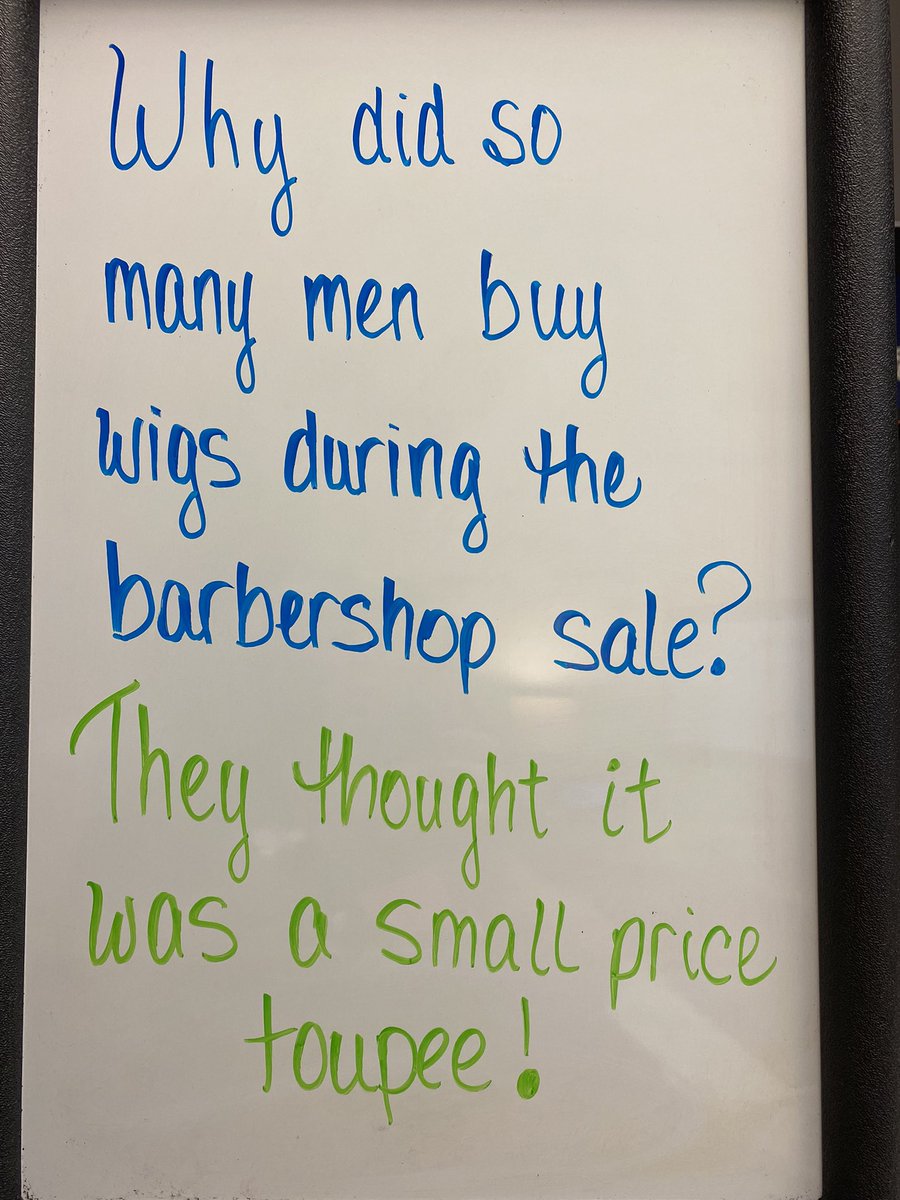 Why did so
many men buy
wigs during the
barbershop sale?
They thought it
was a small price
toupee!